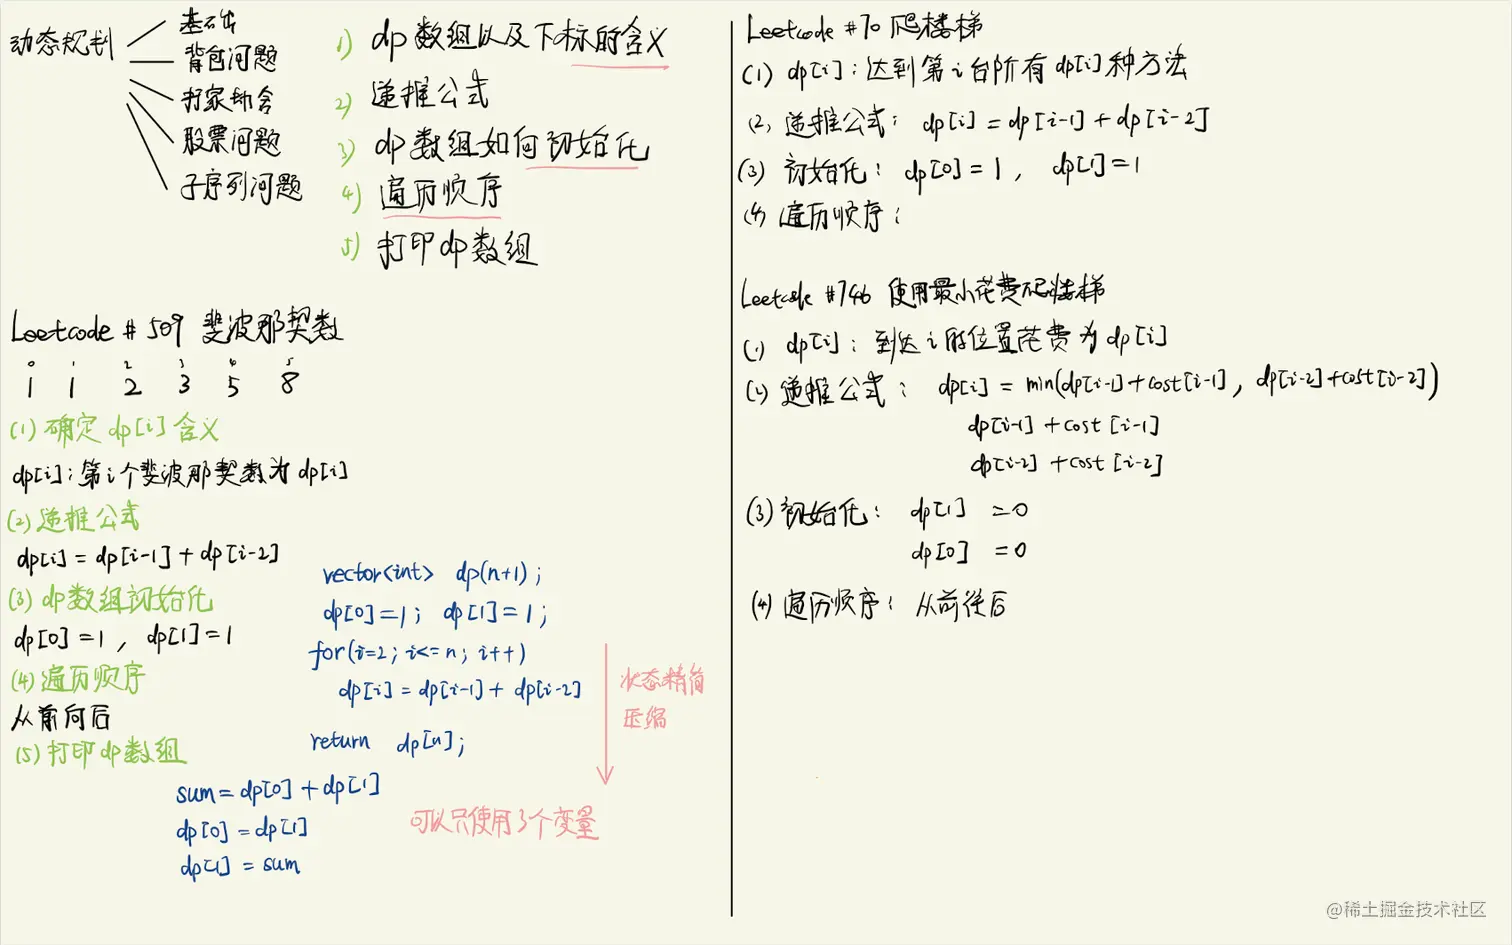 动态规划
基础
背包问题
打家劫舍
股票问题
子序列问题
1) dp数组以及下标的含义
2) 递推公式
3) dp数组如何初始化
4) 遍历顺序
5) 打印dp数组
Leetcode # 509 斐波那契数
0 1 2 3 4 5
1 1 2 3 5 8
(1) 确定 dp[i] 含义
dp[i]: 第i个斐波那契数为 dp[i]
(2) 递推公式
dp[i] = dp[i-1] + dp[i-2]
(3) dp数组初始化
dp[0] = 1 , dp[1] = 1
(4) 遍历顺序
从前向后
(5) 打印dp数组
vector<int> dp(n+1);
dp[0]=1; dp[1]=1;
for(i=2; i<=n; i++)
dp[i] = dp[i-1] + dp[i-2]
return dp[n];
状态精简
压缩
sum = dp[0] + dp[1]
dp[0] = dp[1]
dp[1] = sum
可以只使用3个变量
Leetcode #70 爬楼梯
(1) dp[i]: 达到第i台阶有dp[i]种方法
(2) 递推公式: dp[i] = dp[i-1] + dp[i-2]
(3) 初始化: dp[0] = 1 , dp[1] = 1
(4) 遍历顺序:
Leetcode #746 使用最小花费爬楼梯
(1) dp[i]: 到达i的位置花费为dp[i]
(2) 递推公式: dp[i] = min(dp[i-1]+cost[i-1], dp[i-2]+cost[i-2])
dp[i-1] + cost [i-1]
dp[i-2] + cost [i-2]
(3) 初始化: dp[1] = 0
dp[0] = 0
(4) 遍历顺序: 从前往后
@稀土掘金技术社区